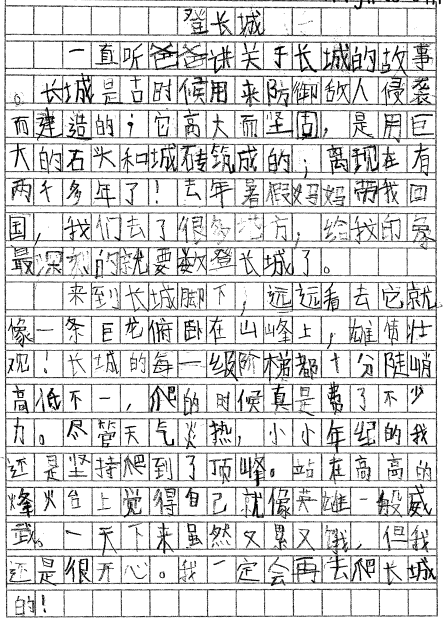 登长城
一直听爸爸讲关于长城的故事
。长城是古时候用来防御敌人侵袭
而建造的；它高大而坚固，是用巨
大的石头和城砖筑成的；离现在有
两千多年了！去年暑假妈妈带我回
国，我们去了很多地方，给我印象
最深刻的就要数登长城了。
来到长城脚下，远远看去它就
像一条巨龙俯卧在山峰上，雄伟壮
观！长城的每一级阶梯都十分陡峭
高低不一，爬的时候真是费了不少
力。尽管天气火热，小小年纪的我
还是坚持爬到了顶峰。站在高高的
烽火台上觉得自己就像英雄一般威
武。一天下来虽然又累又饿，但我
还是很开心。我一定会再去爬长城
的！